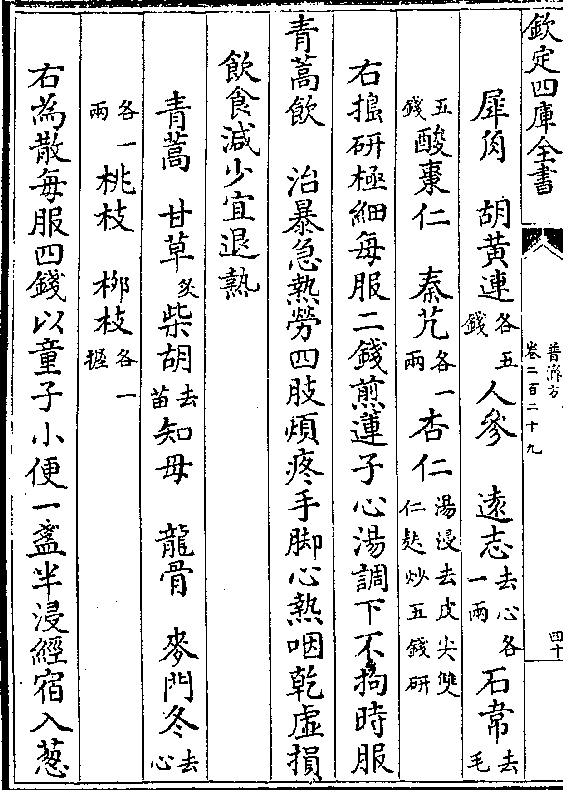 欽定四庫全書
普濟方
卷二百二十九
四十
犀角　胡黃連各五錢人參　遠志去心各一兩石韋去毛
五錢酸棗仁　秦艽各一兩杏仁湯浸去皮尖雙仁麩炒五錢研
右搗研極細每服二錢煎蓮子心湯調下不拘時服
青蒿飲　治暴急熱勞四肢煩疼手脚心熱咽乾虛損
飲食減少宜退熱
青蒿　甘草炙柴胡去苗知母　龍骨　麥門冬去心
各一兩桃枝　栁枝各一握
右為散每服四錢以童子小便一盞半浸經宿入葱